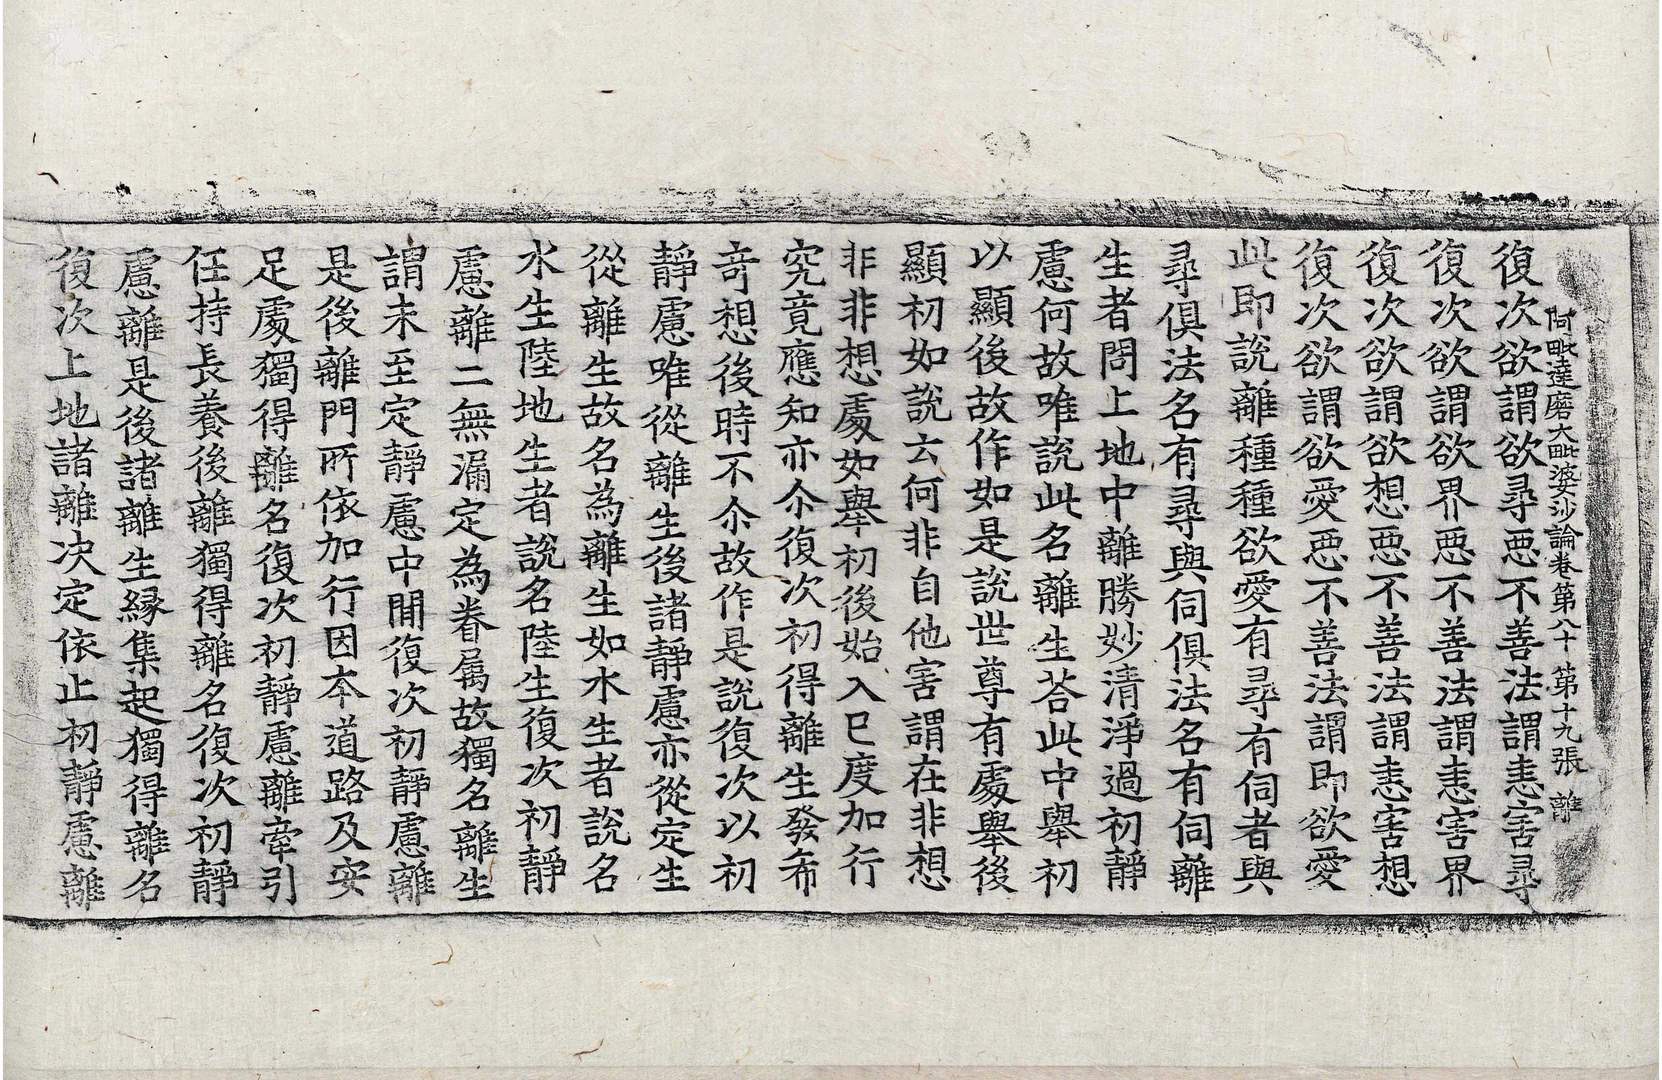 阿毗達磨大毗婆沙論卷第八十 第十九張 離
復次欲謂欲尋惡不善法謂恚害尋
復次欲謂欲界惡不善法謂恚害界
復次欲謂欲想惡不善法謂恚害想
復次欲謂欲愛惡不善法謂即欲愛
此即說離種種欲愛有尋有伺者與
尋俱法名有尋與伺俱法名有伺離
生者問上地中離勝妙清淨過初靜
慮何故唯說此名離生荅此中舉初
以顯後故作如是說世尊有處舉後
顯初如說云何非自他害謂在非想
非非想處如舉初後始入已度加行
究竟應知亦尒復次初得離生發希
竒想後時不尒故作是說復次以初
靜慮唯從離生後諸靜慮亦從定生
從離生故名為離生如水生者說名
水生陸地生者說名陸生復次初靜
慮離二無漏定為眷属故獨名離生
謂未至定靜慮中閒復次初靜慮離
是後離門所依加行因本道路及安
足處獨得離名復次初靜慮離牽引
任持長養後離獨得離名復次初靜
慮離是後諸離生緣集起獨得離名
復次上地諸離決定依止初靜慮離